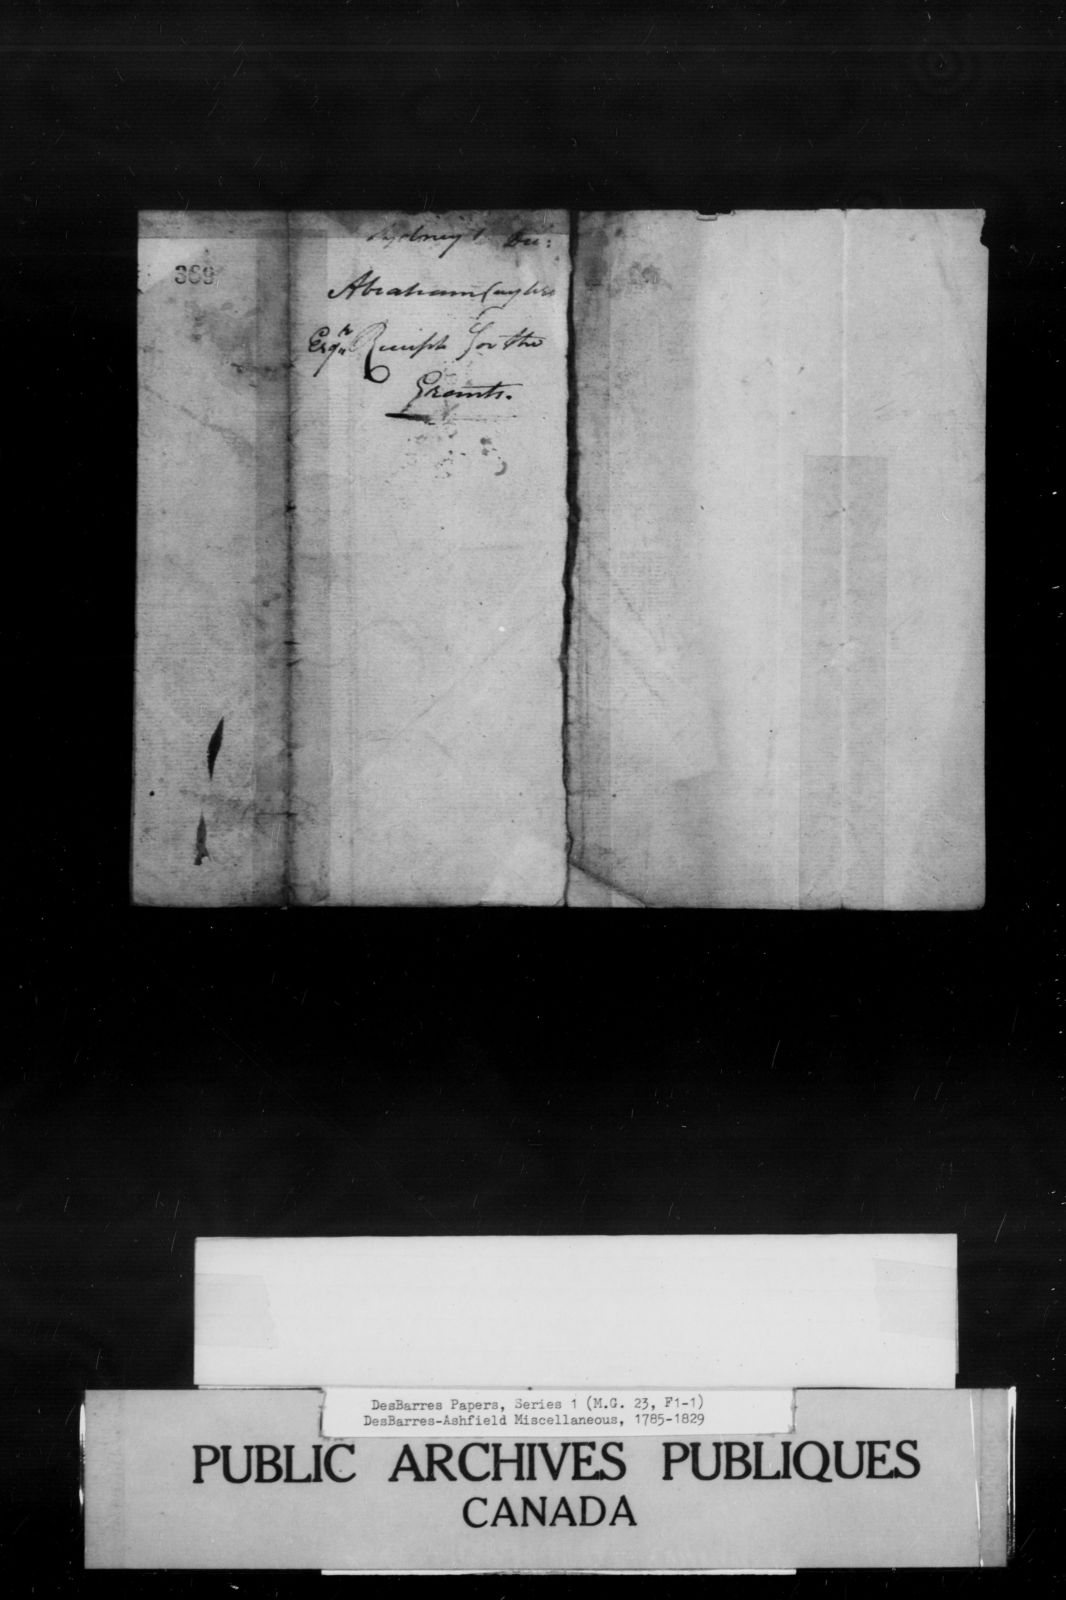 369
Sydney 1 Dec:
Abraham Cuyler
Esqr. Receipt for the
Grants.
DesBarres Papers, Series 1 (M.G. 23, F1-1)
DesBarres-Ashfield Miscellaneous, 1785-1829
PUBLIC ARCHIVES PUBLIQUES
CANADA